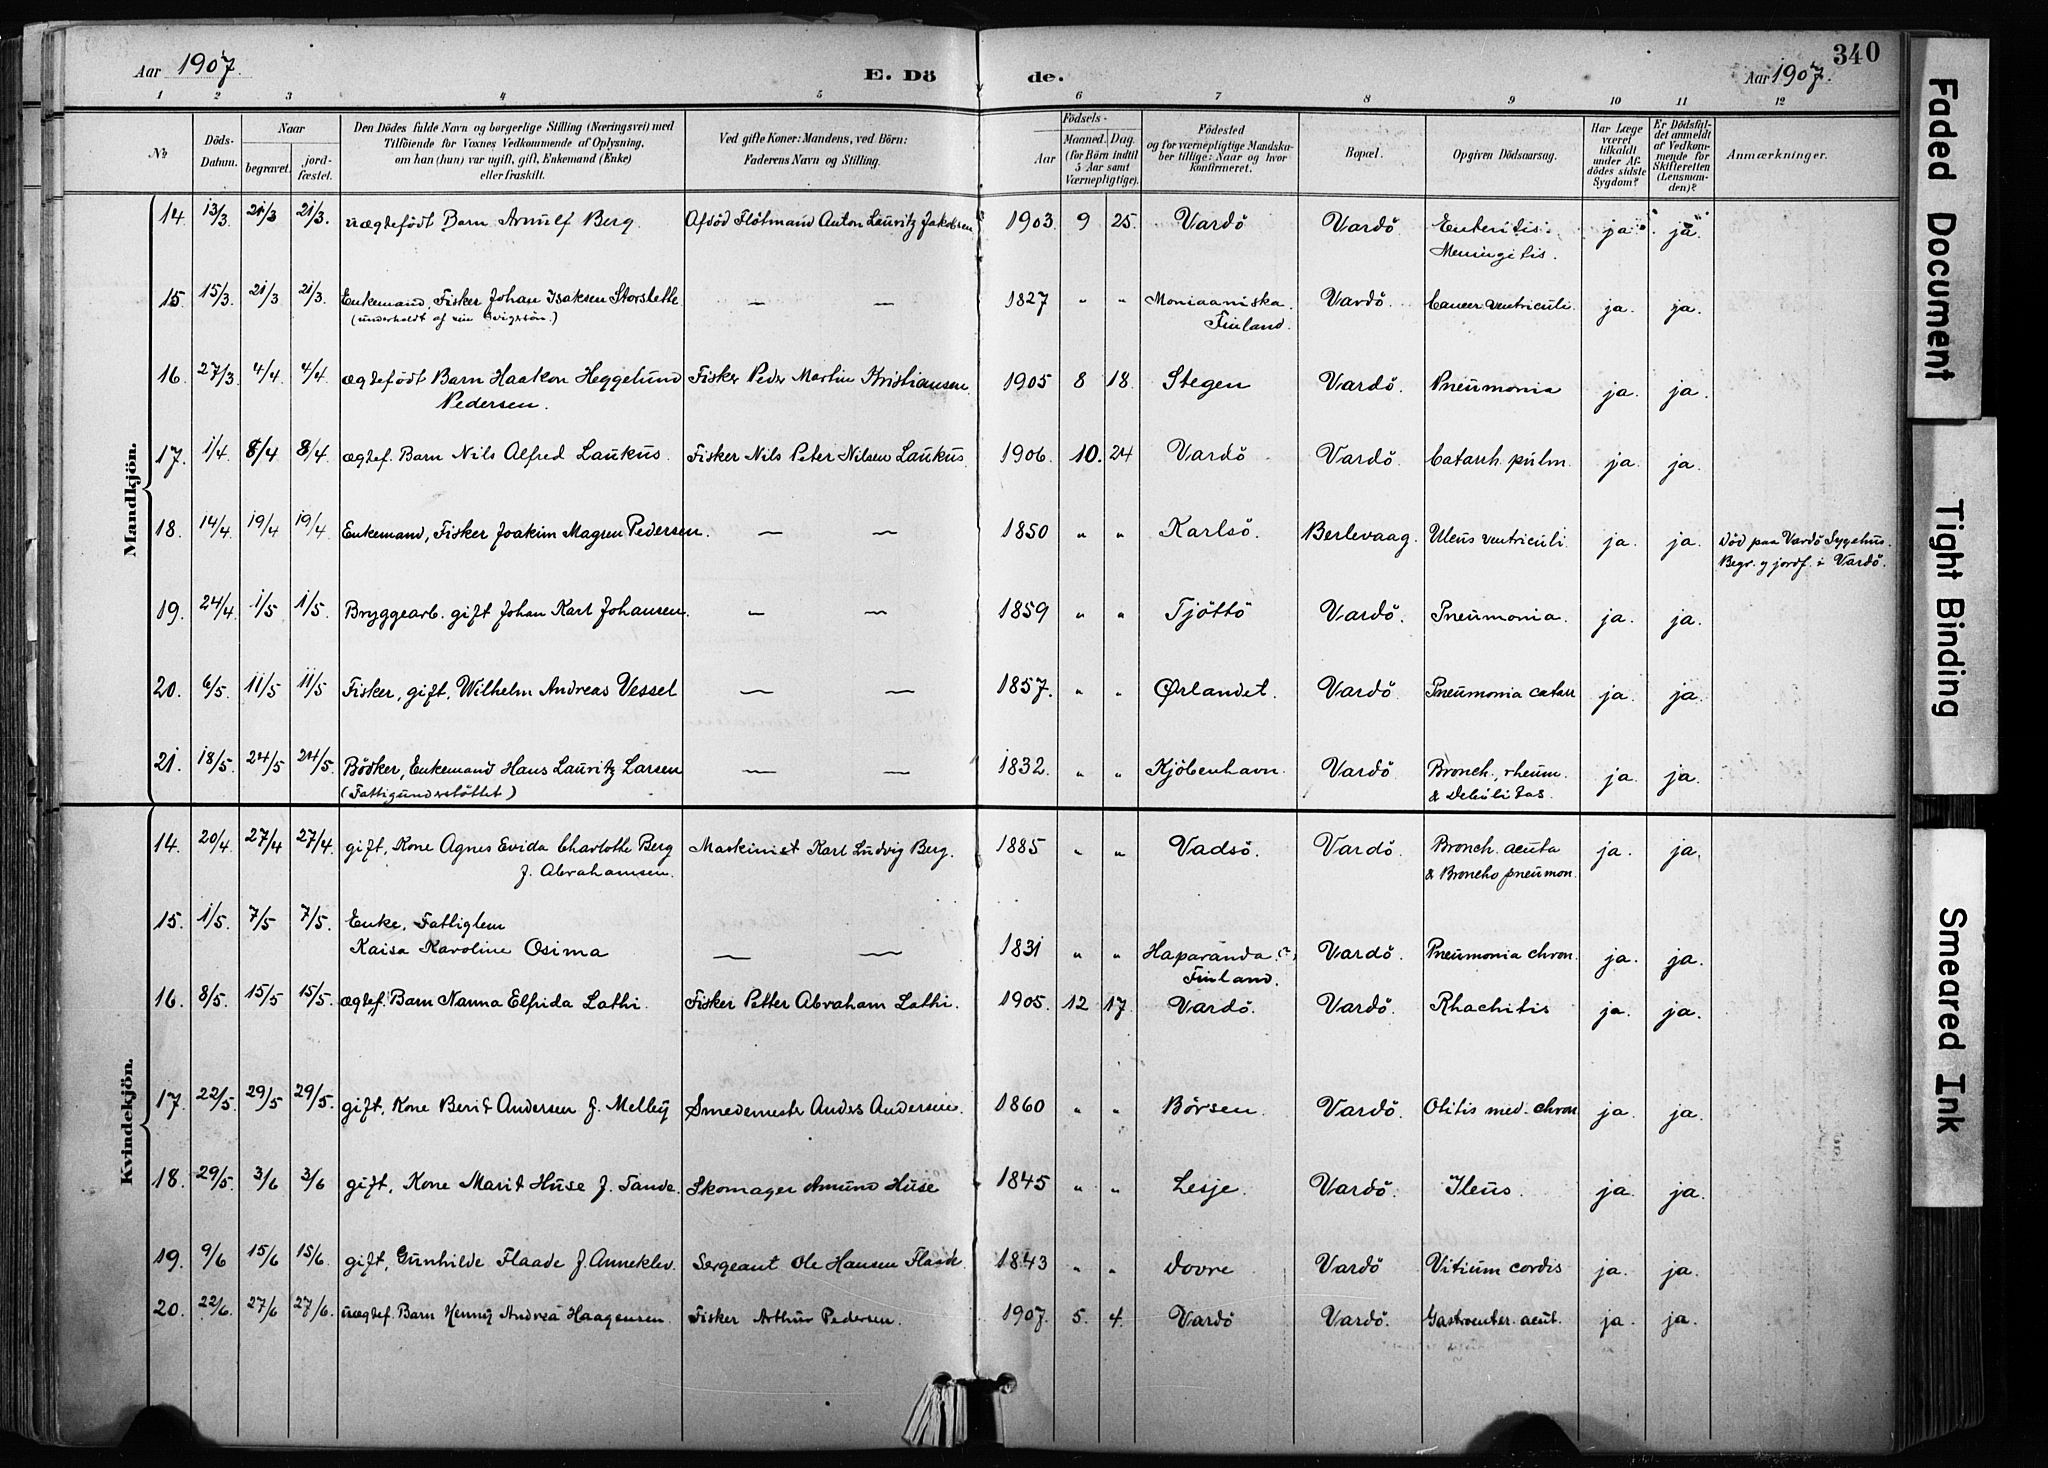 Aar 1907. E. Dö de. Aar 1907. 340
1 2 3 4 5 6 7 8 9 10 11 12
№ Döds-Datum. Naar begravet. jord-fæstet. Den Dödes fulde Navn og borgerlige Stilling (Næringsvei) med Tilföiende for Voxnes Vedkommende af Oplysning, om han (hun) var ugift, gift, Enkemand (Enke) eller fraskilt. Ved gifte Koner: Mandens, ved Börn: Faderens Navn og Stilling. Födsels- Aar Maaned. Dag. (for Börn indtil 5 Aar samt Værnepligtige). Födested og for værnepligtige Mandska-ber tillige: Naar og hvor konfirmeret. Bopæl. Opgiven Dödsaarsag. Har Læge været tilkaldt under Af-dödes sidste Sygdom? Er Dödsfal-det anmeldt af Vedkom-mende for Skifteretten (Lensman-den)? Anmærkninger.
Mandkjön.
14. 13/3 21/3 21/3. uægtefödt Barn Arnulf Berg. Afdöd Flötmand Anton Lauritz Jakobsen 1903 9 25. Vardö Vardö. Enteritis. ja. ja.
Meningitis.
15. 15/3. 21/3 21/3. Enkemand, Fisker Johan Isaksen Storslette — — 1827 " " Moniaaniska. Vardö. Cancer ventriculi. ja. ja.
(underholdt af sin Svigsön.) Finland.
16. 27/3. 4/4. 4/4. ægtefödt Barn Haakon Heggelund Fisker Peder Martin Kristiansen. 1905 8 18. Stegen Vardö. Pneumonia ja. ja.
Pedersen.
17. 1/4. 8/4 8/4. ægtef. Barn Nils Alfred Laukus. Fisker Nils Peter Nilsen Laukus. 1906. 10. 24 Vardö Vardö. Catarrh. pulm. ja. ja.
18. 14/4. 19/4 19/4 Enkemand, Fisker Joakim Magren Pedersen. — — 1850 " " Karlsö. Berlevaag. Ulcus ventriculi. ja. ja. Död paa Vardö Sygehus.
Begr. og jordf. i Vardö.
19. 24/4. 1/5 1/5. Bryggearb. gift Johan Karl Johansen. — — 1859 " " Tjöttö Vardö. Pneumonia. ja. ja.
20. 6/5. 11/5 11/5 Fisker, gift, Wilhelm Andreas Vessel — — 1857. " " Ørlandet. Vardö. Pneumonia catarr ja. ja.
21. 18/5. 24/5 24/5. Bödker, Enkemand Hans Lauritz Larsen — — 1832. " " Kjöbenhavn. Vardö Bronch. rheum. ja. ja.
(Fattigunderstöttet) & Debilitas.
Kvindekjön.
14. 20/4 27/4 27/4. gift, Kone Agnes Evida Charlotte Berg Maskinist Karl Ludvig Berg. 1885 " " Vadsö. Vardö. Bronch. acuta ja. ja.
f. Abrahamsen. & Broncho pneumon.
15. 1/5. 7/5 7/5. Enke, Fattiglem
Kaisa Karoline Osima — — 1831 " " Haparanda (?) Vardö. Pneumonia chron. ja. ja.
Finland.
16. 8/5. 15/5 15/5. ægtef. Barn Nanna Elfrida Lathi. Fisker Petter Abraham Lathi. 1905. 12 17. Vardö. Vardö. Rhachitis ja. ja.
17. 22/5. 29/5 29/5. gift, Kone Berit Andersen f. Melby Smedemestr Anders Andersen. 1860 " " Börsen. Vardö. Otitis med. chron. ja. ja.
18. 29/5. 3/6 3/6 gift, Kone Marit Huse f. Tande. Skomager Amund Huse 1845 " " Lesje. Vardö. Ileus. ja. ja.
19. 9/6 15/6 15/6. gift, Gunhilde Flaade f. Anneklev. Sergeant Ole Hansen Flaade. 1843 " " Dovre Vardö Vitium cordis ja. ja.
20. 22/6. 27/6 27/6. uægtef. Barn Henny Andrea Haagensen. Fisker Arthur Pedersen. 1907. 5. 4. Vardö Vardö. Gastroenter. acut. ja. ja.
Faded Document
Tight Binding
Smeared Ink